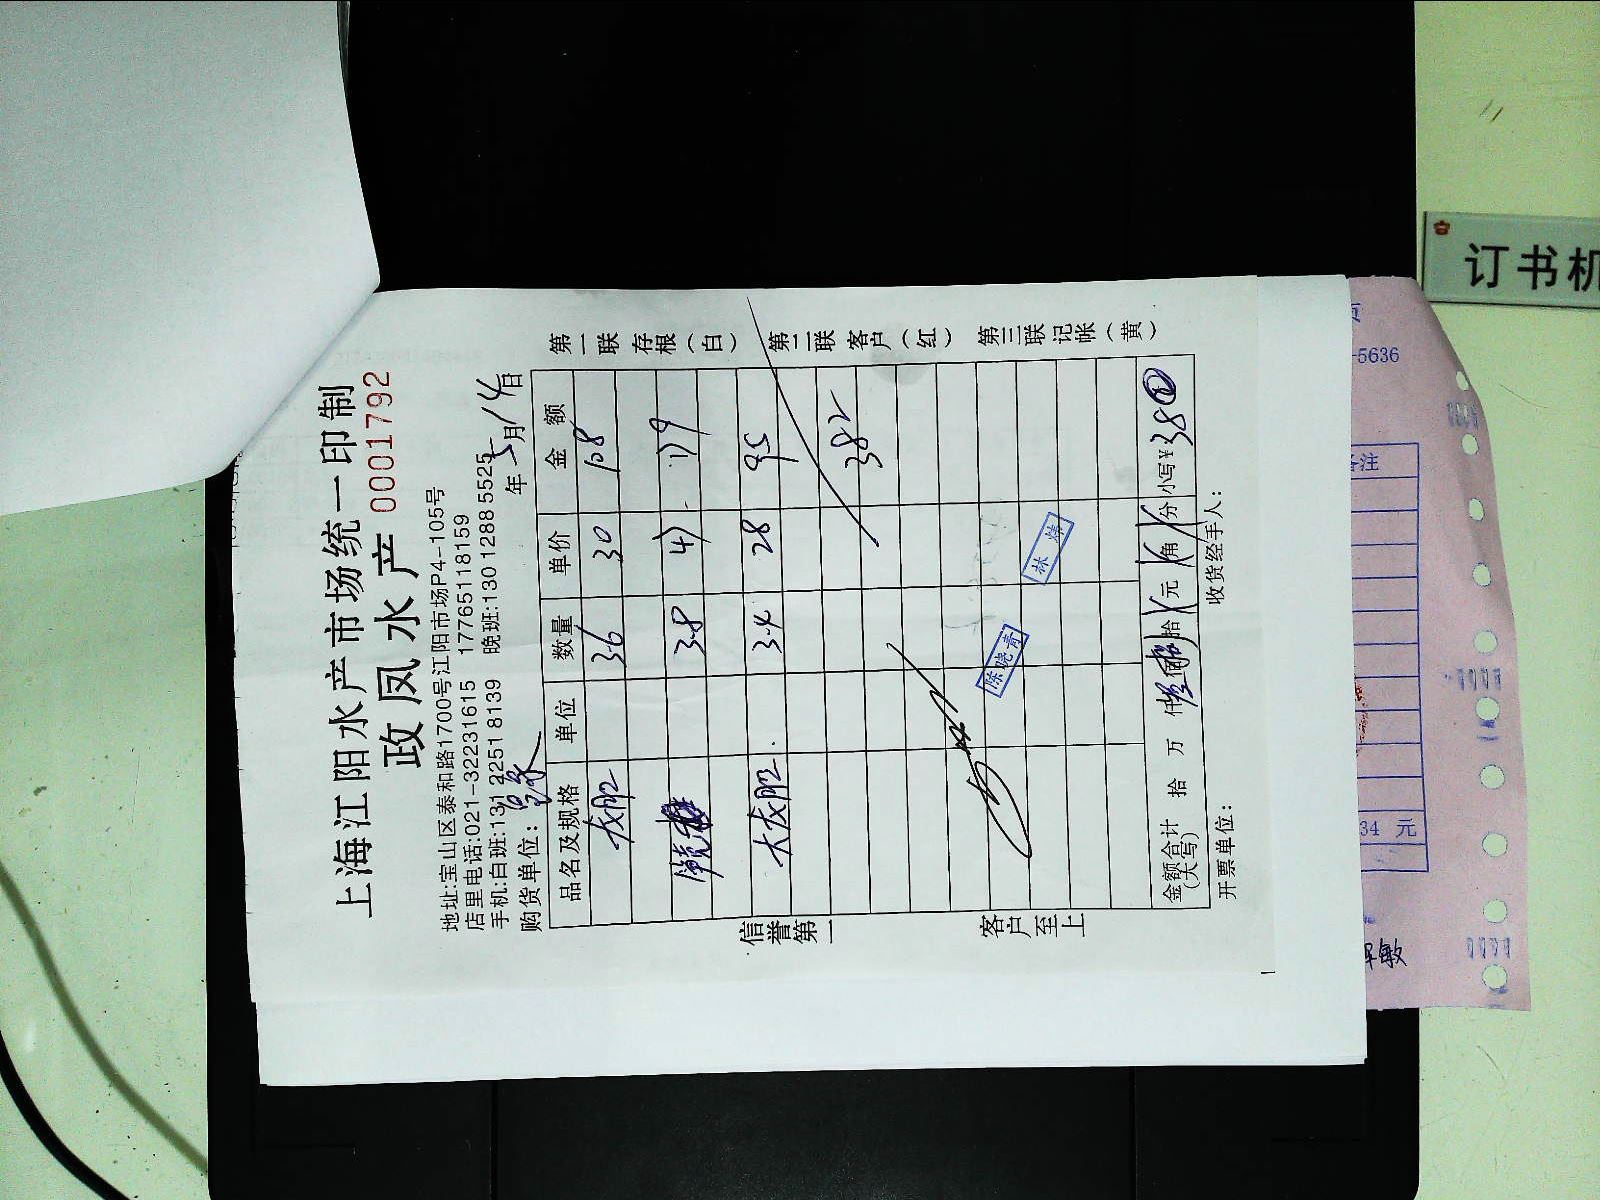 上海江阳水产市场统一印制
政凤水产 0001792
地址:宝山区泰和路1700号江阳市场P4-105号
店里电话:021-32231615 17765118159
手机:白班:131 22518139 晚班:130 12885525
购货单位: 年5月14日
品名及规格 单位 数量 单价 金额
36 30 108
38 47 179
34 28 95
382
陈晓青 林炜
金额合计(大写) 拾 万 仟 佰 拾 元 角 分 小写¥382
开票单位: 收货经手人:
第一联 存根(白) 第二联 客户(红) 第三联 记帐(黄)
信誉第一 客户至上
订书机
-5636
备注
34 元
敏